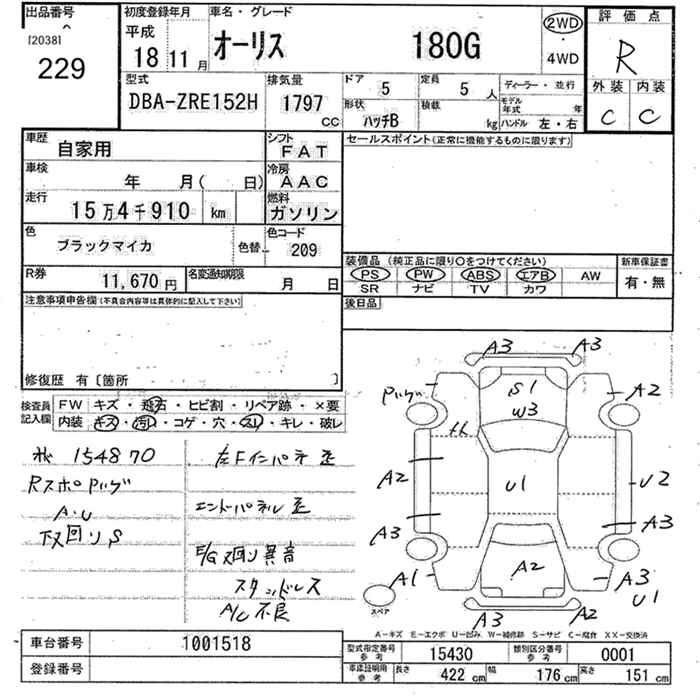 出品番号
120381
229
初度登録年月
平成
18 11 月
車名・グレード
オーリス 180G
2WD
4WD
評価点
R
外装 内装
C C
型式
DBA-ZRE152H
排気量
1797
CC
ドア
5
定員
5 人
形状
ハッチB
積載
kg
ディーラー・並行
モデル年式 年
ハンドル 左・右
車歴
自家用
シフト
FAT
車検
年 月( 日)
冷房
AAC
走行
15万4千910 km
燃料
ガソリン
色
ブラックマイカ
色替
色コード
209
R券
11,670 円
名変通知期限
月 日
セールスポイント(正常に機能するものに限ります)
装備品 (純正品に限り○をつけてください)
PS PW ABS エアB AW
SR ナビ TV カワ
新車保証書
有・無
後日品
注意事項申告欄(不具合内容等は具体的に記入して下さい)
修復歴 有〔箇所 〕
検査員記入欄
FW キズ・飛石・ヒビ割・リペア跡・×要
内装 キズ・汚れ・コゲ・穴・スレ・キレ・破レ
154870
左Fインパネ歪
RスポPハゲ
エンドパネル歪
A.U
下回りS
E/G回り異音
スタッドレス
A/C不良
A3 A3
Pハゲ S1 A2
W3
A2 U1 U2
A3 A3
A1 A2 A3
U1
A3 A2
スペア
A-キズ E-エクボ U-凹み W-補修跡 S-サビ C-腐食 XX-交換済
車台番号
1001518
登録番号
型式指定番号
参考
15430
類別区分番号
参考
0001
車庫証明用
参考
長さ 422 cm 幅 176 cm 高さ 151 cm